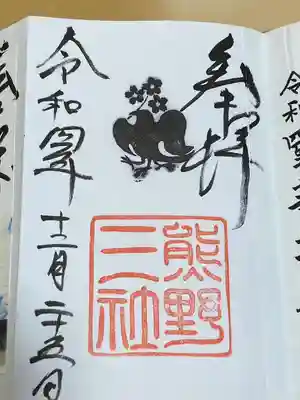 令和
奉拝
熊野
三社
令和四年
十二月二十五日